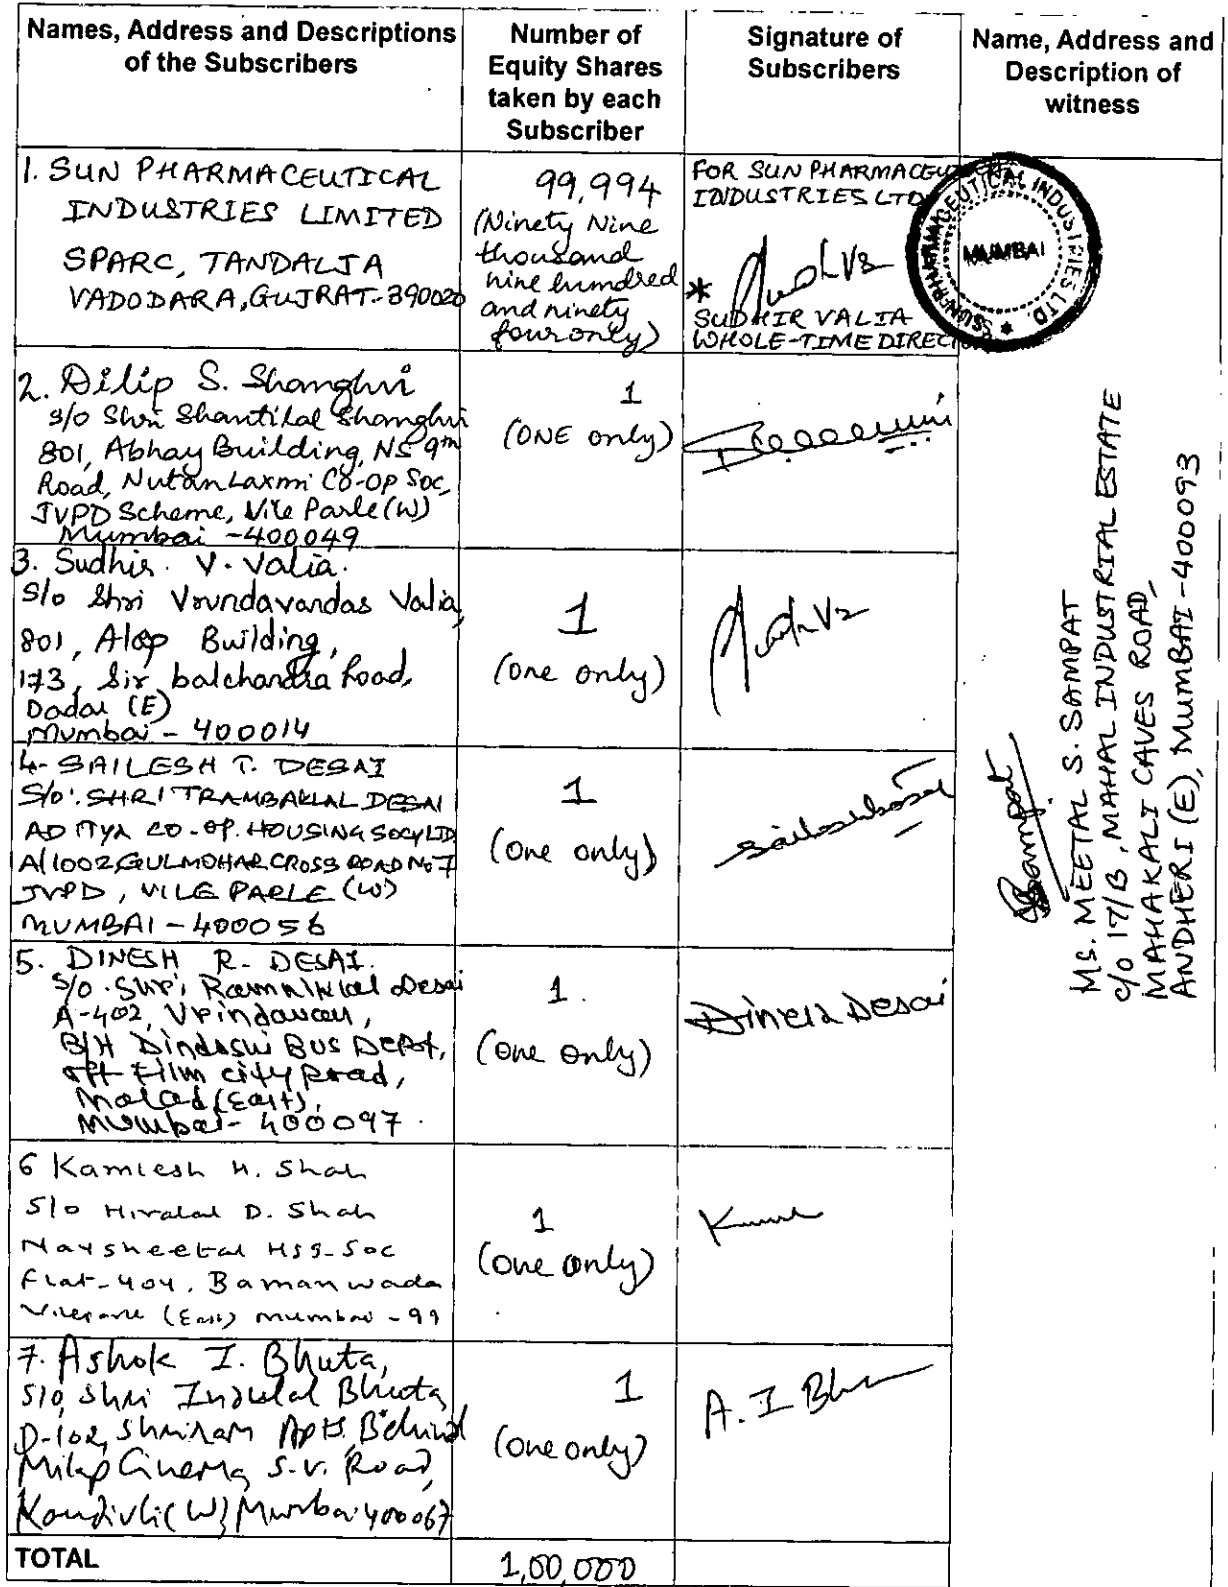 Names, Address and Descriptions
of the Subscribers
Number of
Equity Shares
taken by each
Subscriber
Signature of
Subscribers
Name, Address and
Description of
witness
1. SUN PHARMACEUTICAL
INDUSTRIES LIMITED
SPARC, TANDALJA
VADODARA, GUJRAT-390020
99,994
(Ninety Nine
thousand
nine hundred
and ninety
four only)
FOR SUN PHARMACEUTICAL
INDUSTRIES LTD
*
SUDHIR VALIA
WHOLE-TIME DIRECTOR
SUN PHARMACEUTICAL INDUSTRIES LTD. *
MUMBAI
2. Dilip S. Shanghvi
S/o Shri Shantilal Shanghvi
801, Abhay Building, NS 9th
Road, Nutan Laxmi Co-op Soc,
JVPD Scheme, Vile Parle (W)
Mumbai - 400049
1
(ONE only)
3. Sudhir. V. Valia.
S/o Shri Vrundavandas Valia,
801, Alap Building,
173, Sir balchandra Road,
Dadar (E)
Mumbai - 400014
1
(one only)
4- SAILESH T. DESAI
S/o. SHRI TRAMBAKLAL DESAI
ADITYA CO-OP. HOUSING SOCY LTD
A/1002, GULMOHAR CROSS ROAD No 7
JVPD, VILE PARLE (W)
MUMBAI - 400056
1
(one only)
5. DINESH R. DESAI.
S/o. Shri Desai
A-402, Vrindavan,
B/H Dindoshi Bus Depot,
off Film city Road,
Malad (East),
Mumbai - 400097.
1.
(one only)
Dinesh Desai
6 Kamlesh H. Shah
S/o Hiralal D. Shah
Navsheetal HSG. Soc
Flat-404, Bamanwada
Vileparle (East) Mumbai - 99
1
(one only)
7. Ashok I. Bhuta,
S/o, Shri Indulal Bhuta,
D-102, Shriram Apts. Behind
Milap Cinema, S.V. Road,
Kandivli (W), Mumbai 400067
1
(one only)
A. I Bhu
Sampat
Ms. MEETAL S. SAMPAT
c/o 17/B, MAHAL INDUSTRIAL ESTATE
MAHAKALI CAVES ROAD,
ANDHERI (E), MUMBAI - 400093
TOTAL
1,00,000